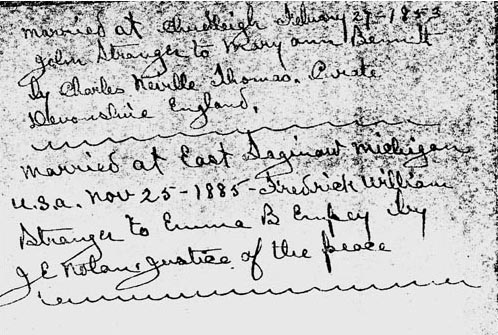 married at Chudleigh February 27-1853
John Stranger to Mary ann Bennett
by Charles Neville Thomas. Curate
Devonshire England,
married at East Saginaw Michigan
U.S.A. Nov 25-1885-Fredrick William
Stranger to Emma B Empey by
J E Nolan, Justice of the peace